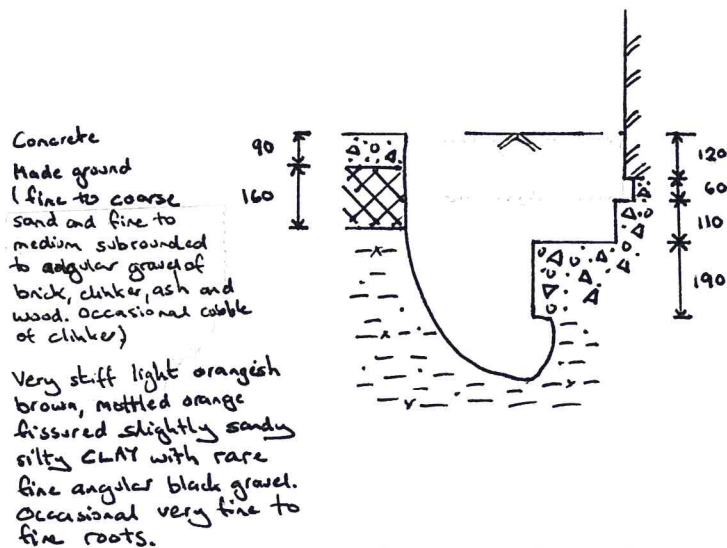 Concrete
Made ground
(fine to coarse
sand and fine to
medium subrounded
to angular gravel of
brick, clinker, ash and
wood. Occasional cobble
of clinker)
Very stiff light orangish
brown, mottled orange
fissured slightly sandy
silty CLAY with rare
fine angular black gravel.
Occasional very fine to
fine roots.
90
160
120
60
110
190